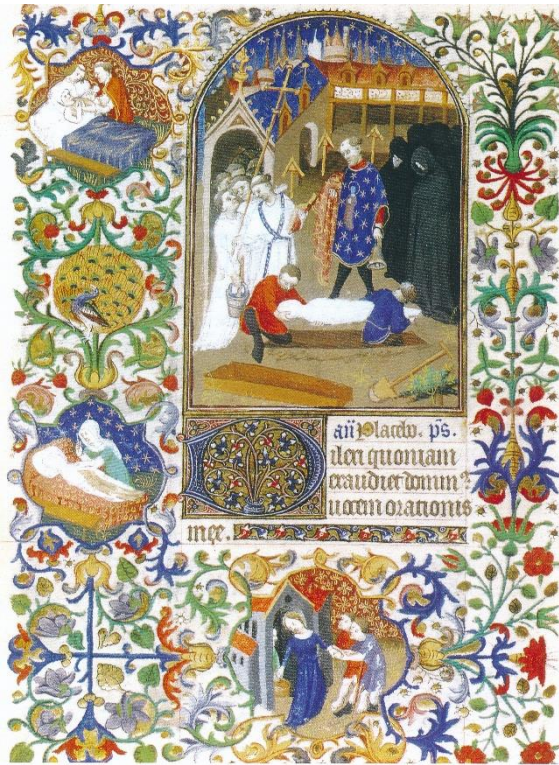 añ Placebo. p̄s.
Dilexi quoniam
exaudiet domin⁹
uocem orationis
mee.